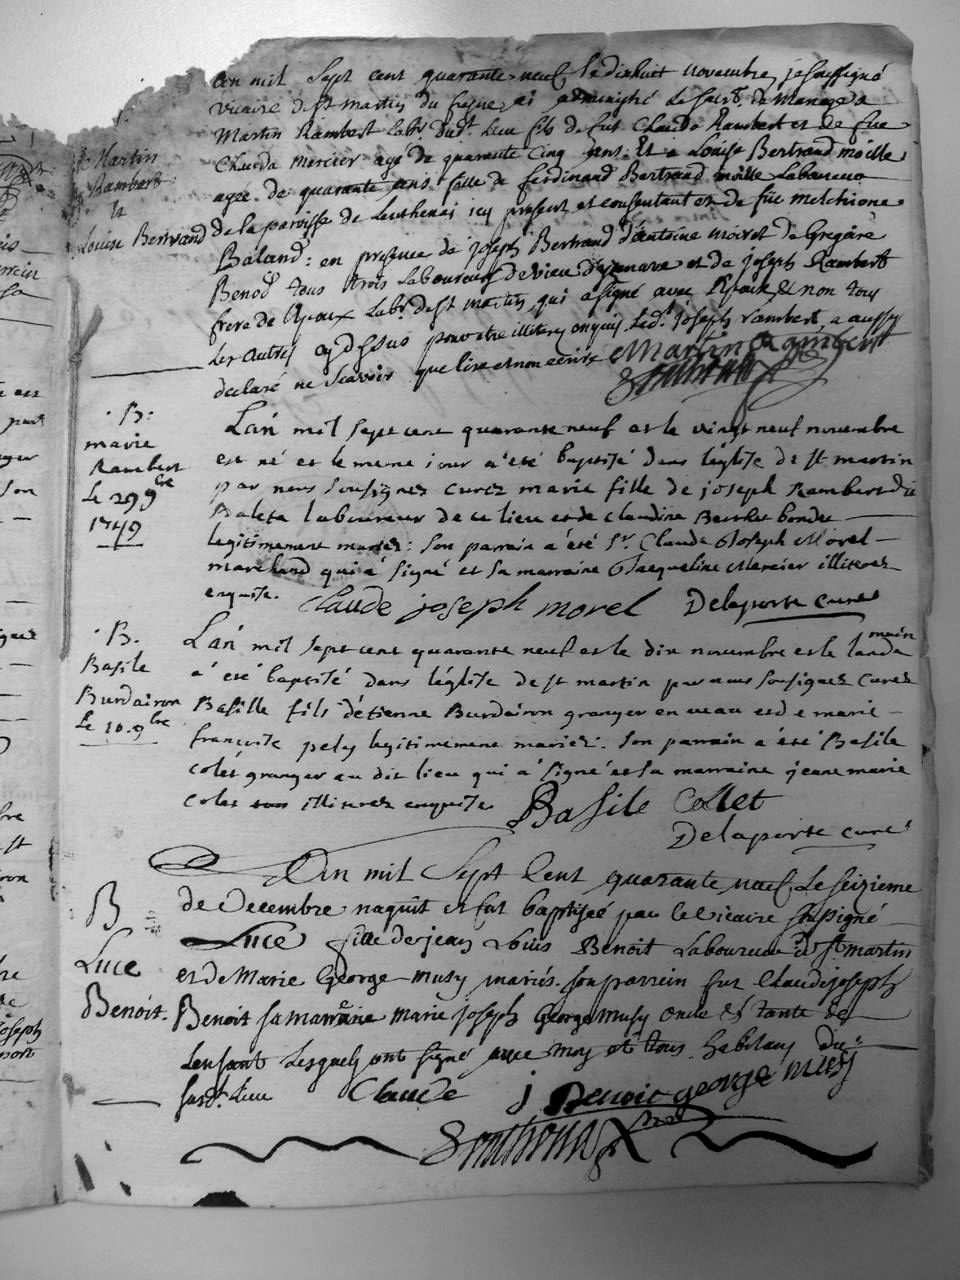 L'an mil sept cent quarante neuf le dixhuit novembre, je soussigné
vicaire de st martin du fresne ai administré le sacrt de Mariage a
Martin Rambert labr dudt lieu fils de fut Claude Rambert et de füe
Clauda mercier agé de quarante cinq ans. Et a Louise Bertrand
agée de quarante ans fille de ferdinand Bertrand Laboureur
de la paroisse de icy présent et consentant et de füe melchione
Baland: en présence de joseph Bertrand d'antoine moiret de Gregoire
Benod tous trois Laboureurs de et de Joseph Rambert
frere de Labr de st martin qui a signé avec et non tous
Les autres cy dessus pour etre illiteres enquis Ledt joseph rambert a aussy
declaré ne scavoir que lire et non ecrire Martin Rambert
Martin
Rambert
et
Louise Bertrand
B:
marie
Rambert
Le 29 9bre
1749
L'an mil sept cent quarante neuf et le vingt neuf novembre
est né et le meme jour a été baptisé dans l'église de st martin
par nous soussignez curez marie fille de joseph Rambert dit
Baleta laboureur de ce lieu et de claudine
legitimement mariez: son parrain a été Sr. Claude Joseph Morel
marchand qui a signé et sa marraine Jacqueline Mercier illiterez
enquise. Claude joseph morel Delaporte curé
B.
Basile
Burdairon
Le 10. 9bre
L'an mil sept cent quarante neuf et le dix novembre et le landemain
a été baptisé dans l'église de st martin par nous soussignez curez
Basille fils d'étienne Burdairon granger en veau et de marie
françoise pely legitimement mariez: son parrain a été Basile
colet granger au dit lieu qui a signé et sa marraine jeane marie
colet illiterez enquise Basile Collet
Delaporte curé
B
Luce
Benoit.
L'an mil sept cent quarante neuf, Le seizieme
de Decembre naquit et fut baptisée par le vicaire soussigné
Luce fille de jean Loüis Benoit Laboureur de st martin
et de Marie George-musy mariés. son parrein fut Claude joseph
Benoit sa marraine marie joseph George musy oncle et tante de
L'enfant Lesquels ont signé avec moy et tous habitans du
susdt Lieu Claude j Benoit george musy